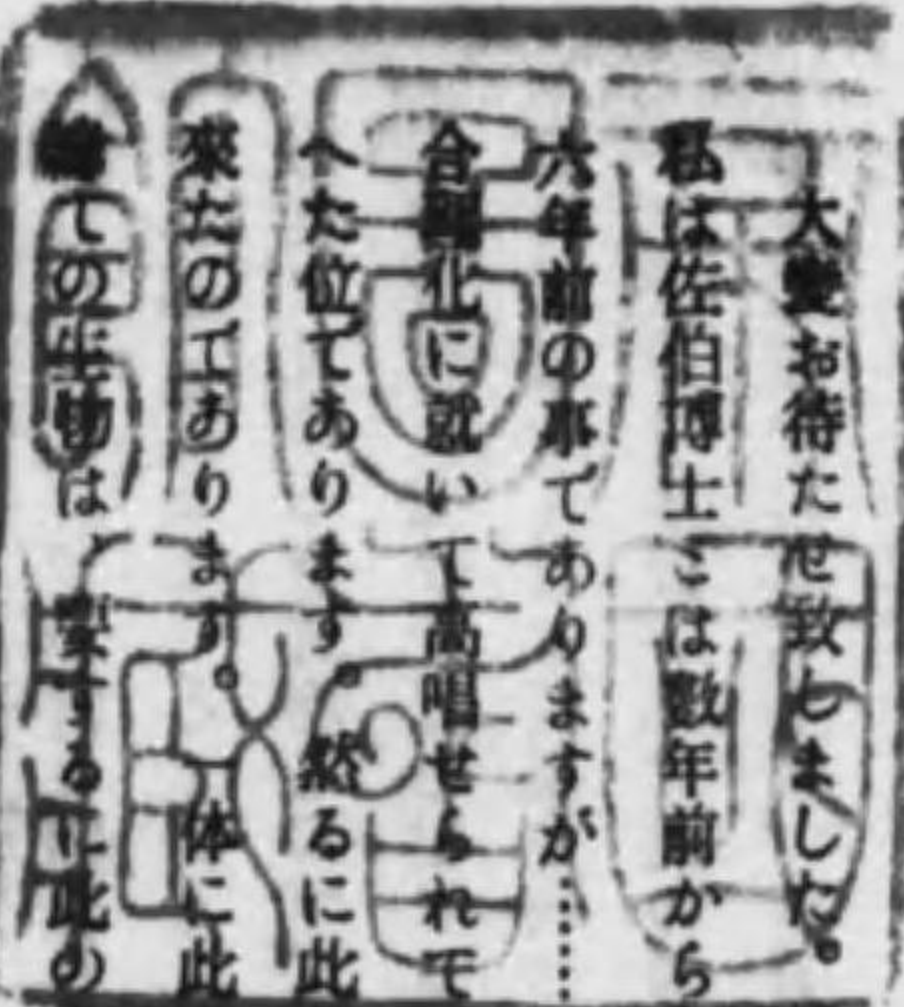 大變お待たせ致しました。
私は佐伯博士とは數年前から
六年前の事でありますが……
合
化に就いて高唱せられて
へた位であります。然るに此
來たのであります。
体に此
ての生物は
要するに此の